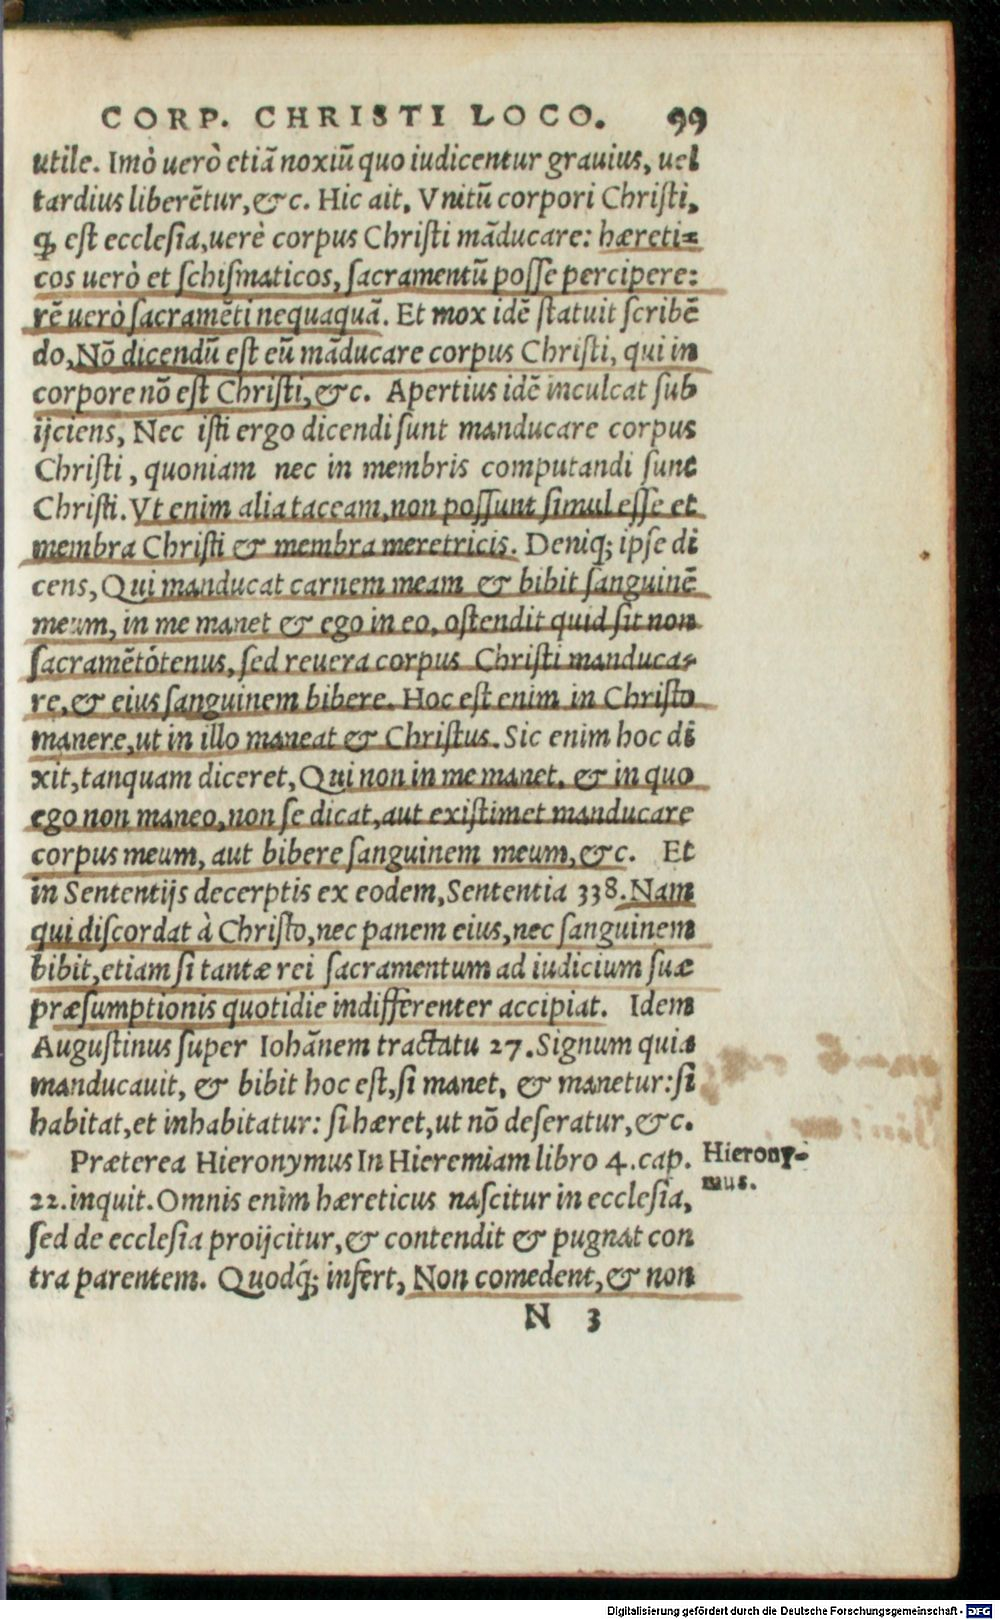 CORP. CHRISTI LOCO. 99
utile. Imò uerò etiā noxiū quo iudicentur grauius, uel
tardius liberētur, &c. Hic ait, Vnitū corpori Christi,
ꝗ est ecclesia, uerè corpus Christi māducare: hæreti=
cos uerò et schismaticos, sacramentū posse percipere:
rē uerò sacramēti nequaquā. Et mox idē statuit scribē
do, Nō dicendū est eū māducare corpus Christi, qui in
corpore nō est Christi, &c. Apertius idē inculcat sub
ijciens, Nec isti ergo dicendi sunt manducare corpus
Christi, quoniam nec in membris computandi sunt
Christi. Vt enim alia taceam, non possunt simul esse et
membra Christi & membra meretricis. Deniq; ipse di
cens, Qui manducat carnem meam & bibit sanguinē
meum, in me manet & ego in eo, ostendit quid sit non
sacramētótenus, sed reuera corpus Christi manduca=
re, & eius sanguinem bibere. Hoc est enim in Christo
manere, ut in illo maneat & Christus. Sic enim hoc di
xit, tanquam diceret, Qui non in me manet, & in quo
ego non maneo, non se dicat, aut existimet manducare
corpus meum, aut bibere sanguinem meum, &c. Et
in Sententijs decerptis ex eodem, Sententia 338. Nam
qui discordat à Christo, nec panem eius, nec sanguinem
bibit, etiam si tantæ rei sacramentum ad iudicium suæ
præsumptionis quotidie indifferenter accipiat. Idem
Augustinus super Iohānem tractatu 27. Signum quia
manducauit, & bibit hoc est, si manet, & manetur: si
habitat, et inhabitatur: si hæret, ut nō deseratur, &c.
Præterea Hieronymus In Hieremiam libro 4. cap.
Hierony=
mus.
22. inquit. Omnis enim hæreticus nascitur in ecclesia,
sed de ecclesia proijcitur, & contendit & pugnat con
tra parentem. Quodq́; infert, Non comedent, & non
N 3
Digitalisierung gefördert durch die Deutsche Forschungsgemeinschaft - DFG